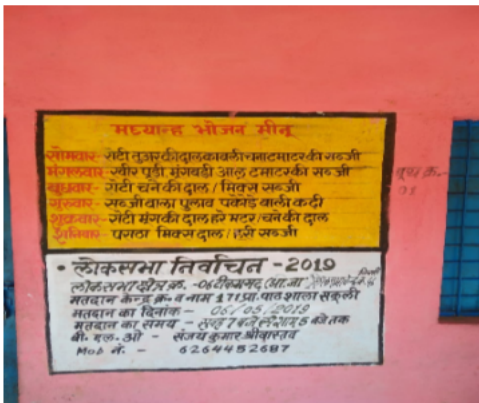 मध्यान्ह भोजन मीनू
सोमवार- रोटी तुअर की दाल काबली चना टमाटर की सब्जी
मंगलवार- खीर पूड़ी मूंगबड़ी आलू टमाटर की सब्जी
बुधवार- रोटी चने की दाल / मिक्स सब्जी
गुरुवार- सब्जी वाला पुलाव पकोड़े वाली कढ़ी
शुक्रवार- रोटी मूंग की दाल हरे मटर / चने की दाल
शनिवार- पराठा मिक्स दाल / हरी सब्जी
• लोकसभा निर्वाचन - 2019
लोकसभा क्षेत्र क्र. - 06 टीकमगढ़ (अ.जा
मतदान केन्द्र क्र. व नाम 171 प्रा. पाठशाला
मतदान का दिनांक - 06/05/2019
मतदान का समय - सुबह 7 बजे से शाम 6 बजे तक
बी. एल. ओ - संजय कुमार श्रीवास्तव
Mob नं. - 6264452687